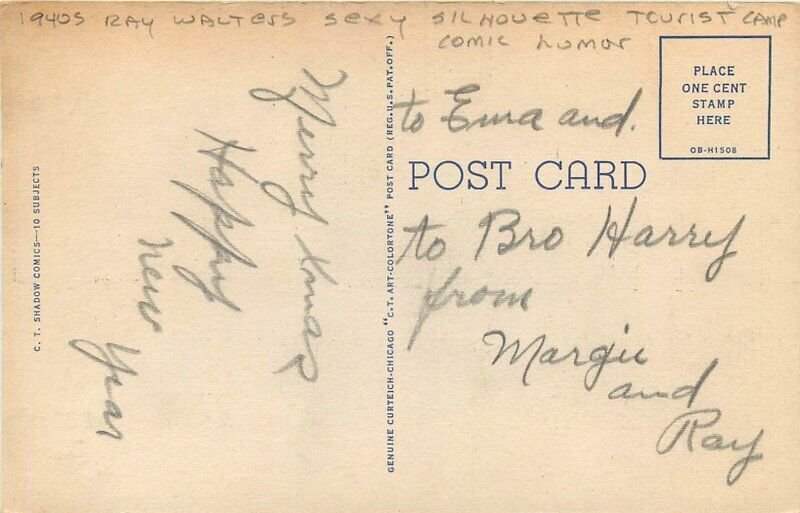 1940s RAY WALTERS SEXY SILHOUETTE TOURIST CAMP
COMIC HUMOR
PLACE
ONE CENT
STAMP
HERE
OB-H1508
Merry Xmas
Happy
New
Year
C. T. SHADOW COMICS—10 SUBJECTS
GENUINE CURTEICH-CHICAGO "C.T. ART-COLORTONE" POST CARD (REG. U.S. PAT. OFF.)
to Ema and.
POST CARD
to Bro Harry
from
Margie
and
Ray